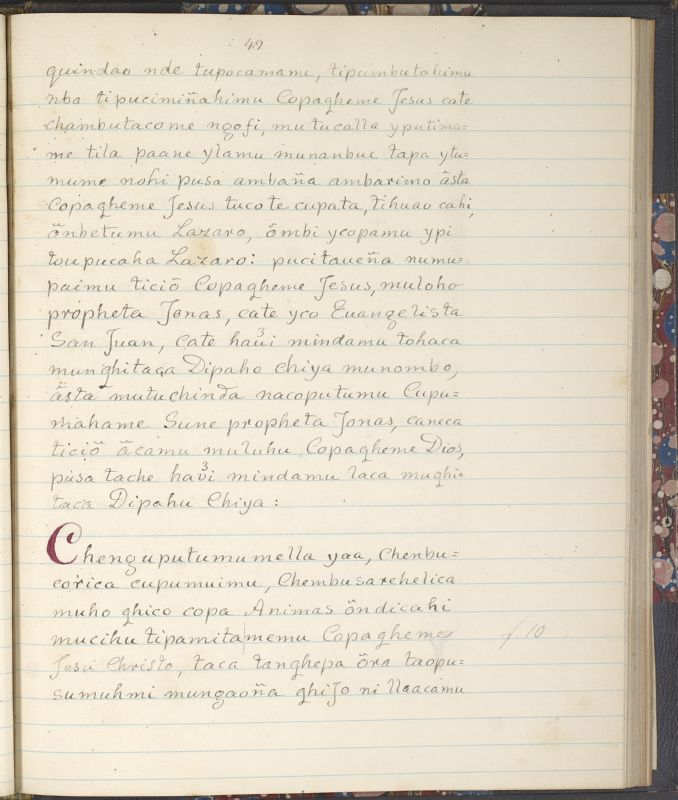 49
quindao nde tupocamame, tipumbutahimu
nba tipucimiñahimu Copagheme Jesus cate
chambutacome ngofi, mutucalla yputima=
me tila paane ylamu munanbuc tapa ytu=
mume nohi pusa ambaña ambarimo ästa
Copagheme Jesus tucote cupata, tihuao cahi,
önbetumu Lazaro, ömbi ycopamu ypi
toupucaha Lazaro: pucitaueña numu=
paimu ticiö Copagheme Jesus, muloho
propheta Jonas, cate yco Euangelista
San Juan, cate haũi 3 mindamu tohaca
munghitaga Dipaho Chiya munombo,
ästa mutuchinda nacoputumu Cupu=
mahame Sune propheta Jonas, caneca
ticiö äcamu muluhu Copagheme Dios,
pusa tache havi 3 mindamu laca mughi=
taca Dipahu Chiya:
Chenguputumumella yaa, Chenbu=
corica cupumuimu, Chembusarehelica
muho ghico copa Animas öndicahi
mucihu tipamitamemu Copagheme
f. 10
Jesu Christo, taca tanghepa öra taopu=
sumuhmi mungaoña ghiJo ni Naacamu